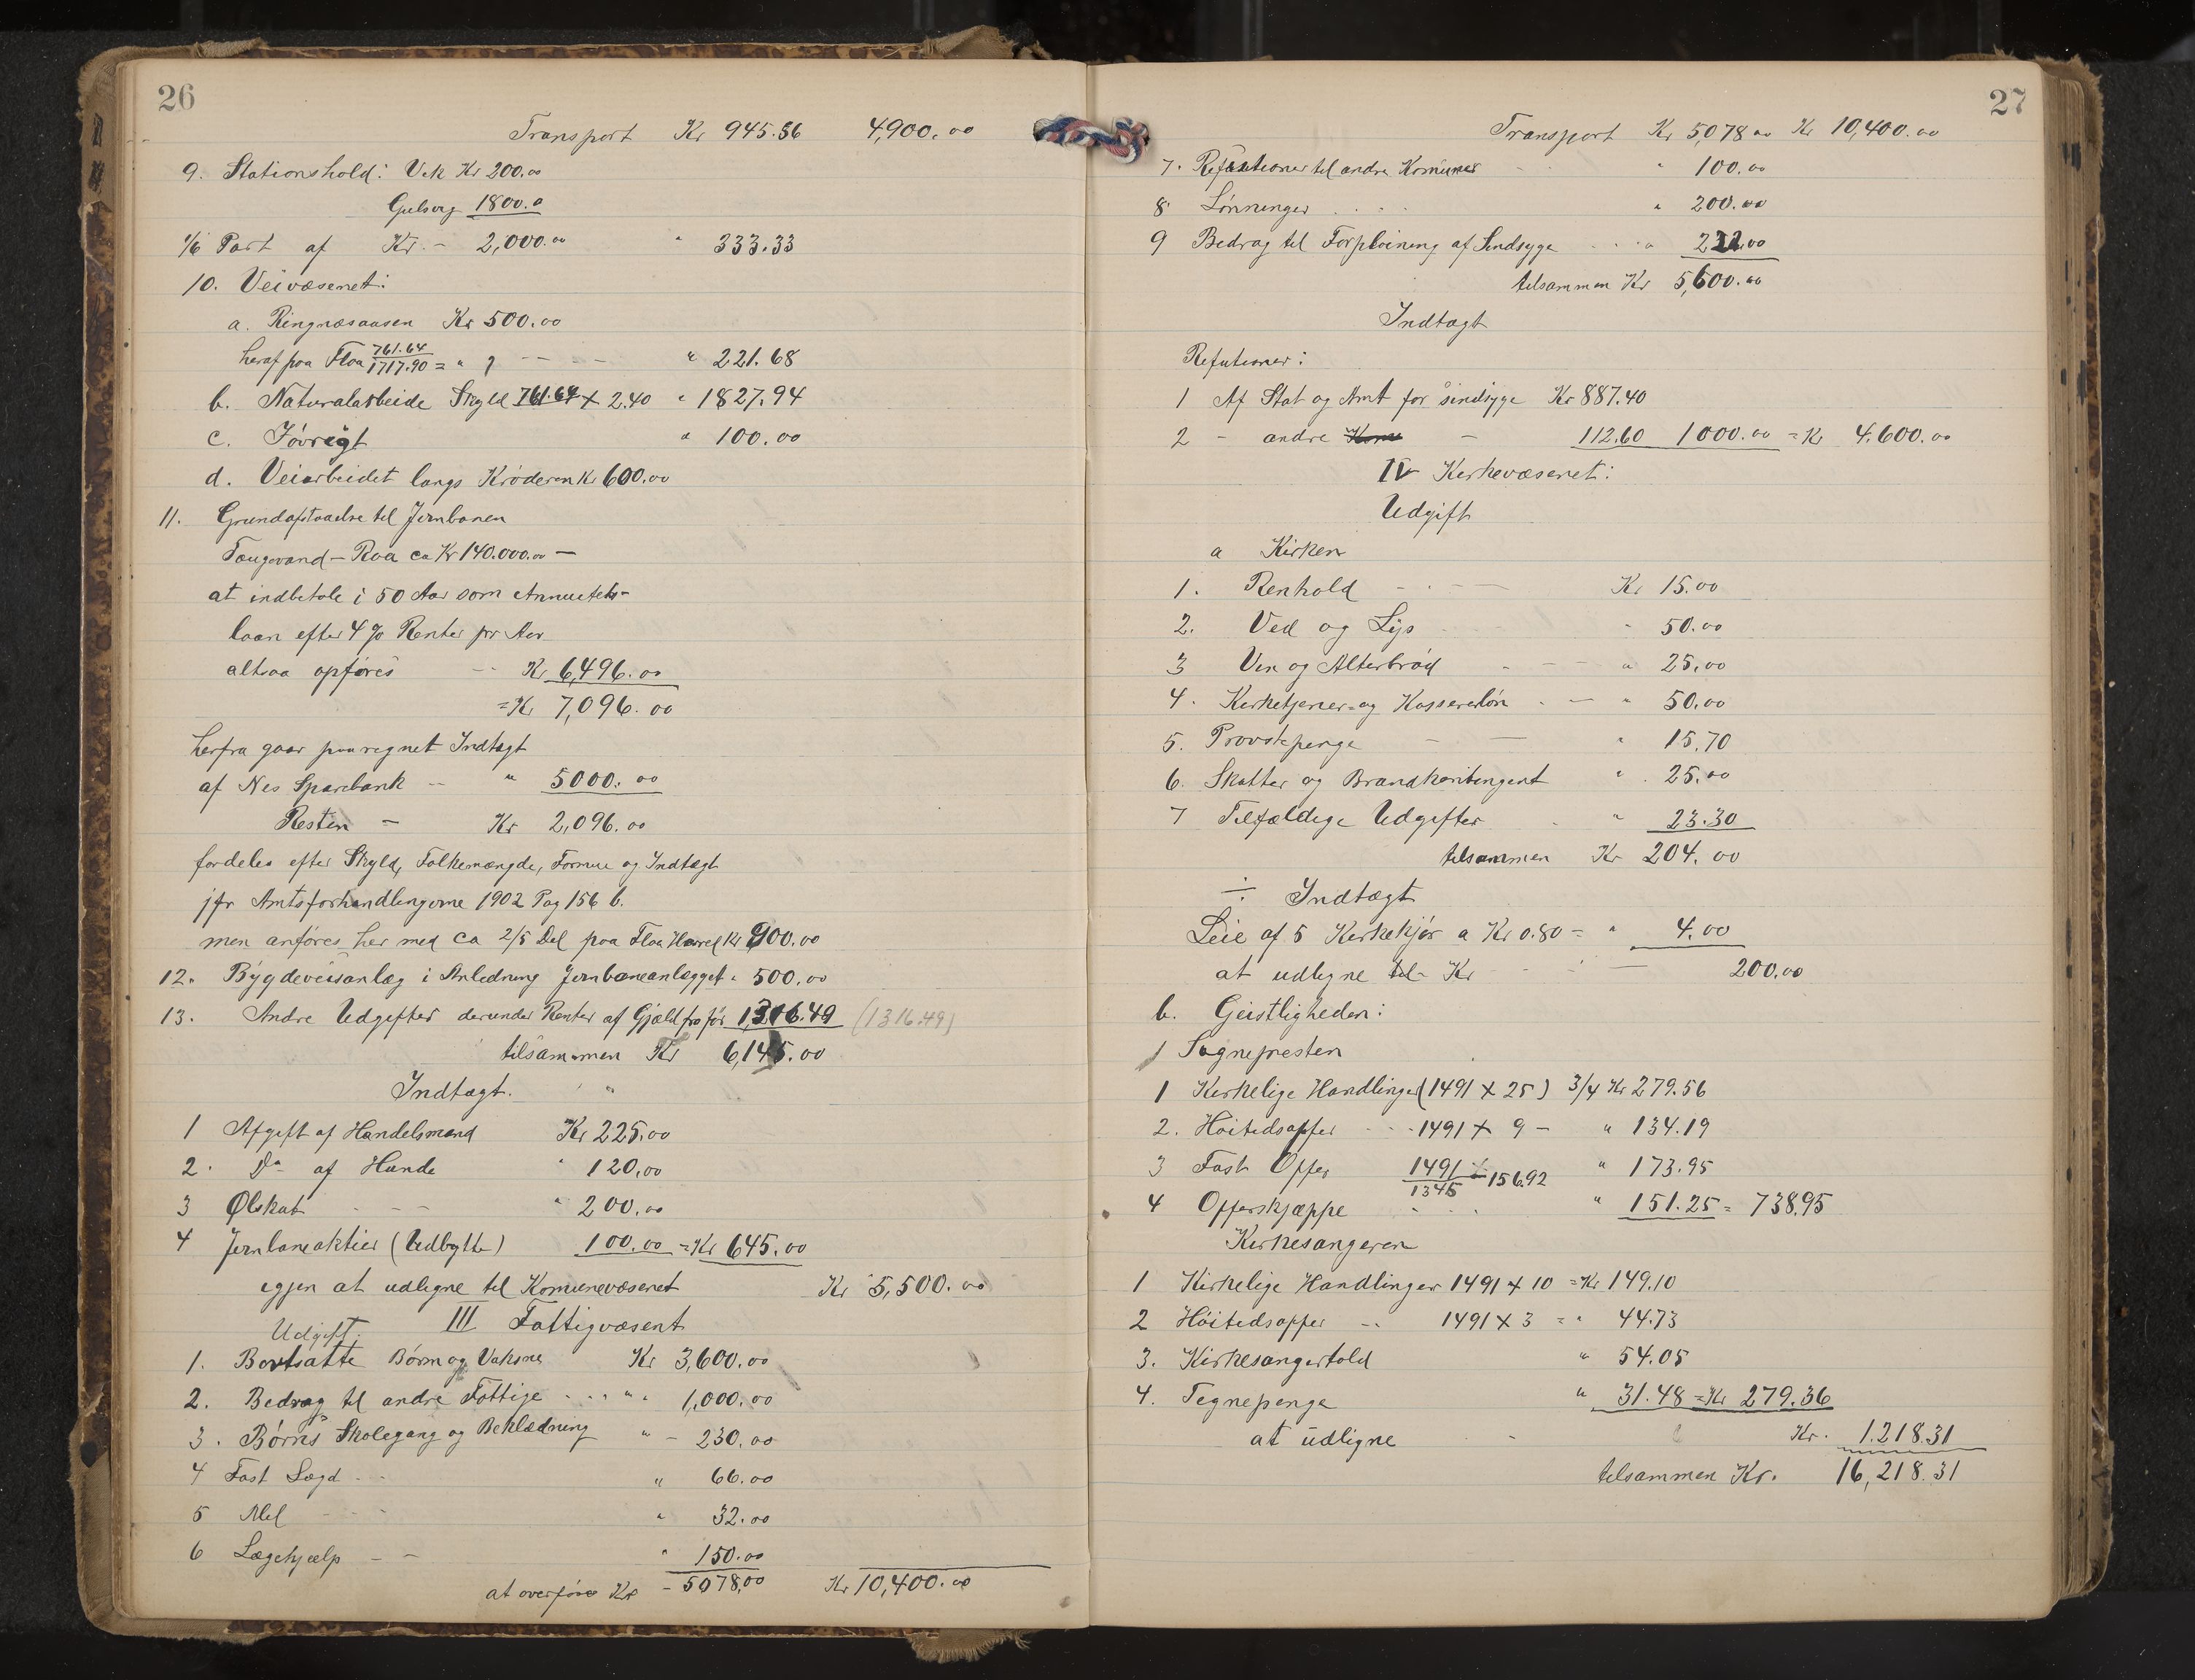 26
Transport Kr 945.56 4,900.00
9. Stationshold: Vik Kr 200.00
Gulsvig 1800.0
1/6 Part af Kr. – 2,000.00 " 333.33
10. Veivæsenet:
a. Ringnæsaasen Kr 500.00
heraf paa Flaa 761.64/1717.90 = " " 221.68
b. Naturalarbeide Skyld 761.64 × 2.40 " 1827.94
c. Føvrigt " 100.00
d. Veiarbeidet langs Krøderen Kr 600.00
11. Grundafstaaelse til Jernbanen
Taugevand – Roa ca Kr 140.000.00 –
at indbetale i 50 Aar som Annuitets-
laan efter 4 % Renter pr Aar
altsaa opføres Kr 6,496.00
= Kr 7,096.00
herfra gaar paaregnet Indtægt
af Nes Sparebank – " 5000.00
Resten – Kr 2,096.00
fordeles efter Skyld, Folkemængde, Formue og Indtægt
jfr Amtsforhandlingerne 1902 Pag 156 b.
men anføres her med ca 2/5 Del paa Flaa Herred Kr 900.00
12. Bygdeveisanlæg i Anledning Jernbaneanlægget " 500.00
13. Andre Udgifter derunder Renter af Gjæld fra før 1316.49 (1316.49)
tilsammen Kr 6,145.00
Indtægt.
1 Afgift af Handelsmænd Kr 225.00
2. Do af Hunde " 120.00
3 Ølskat - - - " 200.00
4 Jernbaneaktier (Udbytte) 100.00 = Kr 645.00
igjen at udligne til Komunevæsenet Kr 5,500.00
III Fattigvæsent
Udgift.
1. Bortsatte Børn og Vaksne Kr 3,600.00
2. Bedrag til andre Fattige " 1,000.00
3. Børns Skolegang og Beklædning " – 230.00
4 Fast Lægd - - " 66.00
5 Mel - - - " 32.00
6 Lægehjælp – – " 150.00
at overføre Kr – 5078.00 Kr 10,400.00
27
Transport Kr 5,078.00 Kr 10,400.00
7. Refutioner til andre Komuner " 100.00
8 Lønninger " 200.00
9 Bedrag til Forpleining af Sindsyge " 222.00
tilsammen Kr 5,600.00
Indtægt
Refutioner:
1 Af Stat og Amt for sindsyge Kr 887.40
2 – andre Kom – 112.60 1000.00 = Kr 4.600.00
IV Kirkevæsenet:
Udgift
a Kirken
1. Renhold Kr 15.00
2. Ved og Lys " 50.00
3 Vin og Alterbrød " 25.00
4. Kirketjener- og Kassererløn " 50.00
5. Provstepenge " 15.70
6. Skatter og Brandkontingent " 25.00
7 Tilfældige Udgifter " 23.30
tilsammen Kr 204.00
÷ Indtægt
Leie af 5 Kirkekjør a Kr 0.80 = " 4.00
at udligne til – Kr 200.00
b. Geistligheden:
1 Sognepresten
1 Kirkelige Handlinger (1491 × 25) 3/4 Kr 279.56
2. Høitidsoffer - - - 1491 × 9 – " 134.19
3 Fast Offer 1491/1345 × 156.92 " 173.95
4 Offerskjæppe " 151.25 = 738.95
Kirkesangeren
1 Kirkelige Handlinger 1491 × 10 = Kr 149.10
2 Høitidsoffer - - 1491 × 3 = " 44.73
3. Kirkesangertold " 54.05
4. Tegnepenge " 31.48 = Kr 279.36
at udligne Kr. 1.218.31
tilsammen Kr. 16,218.31